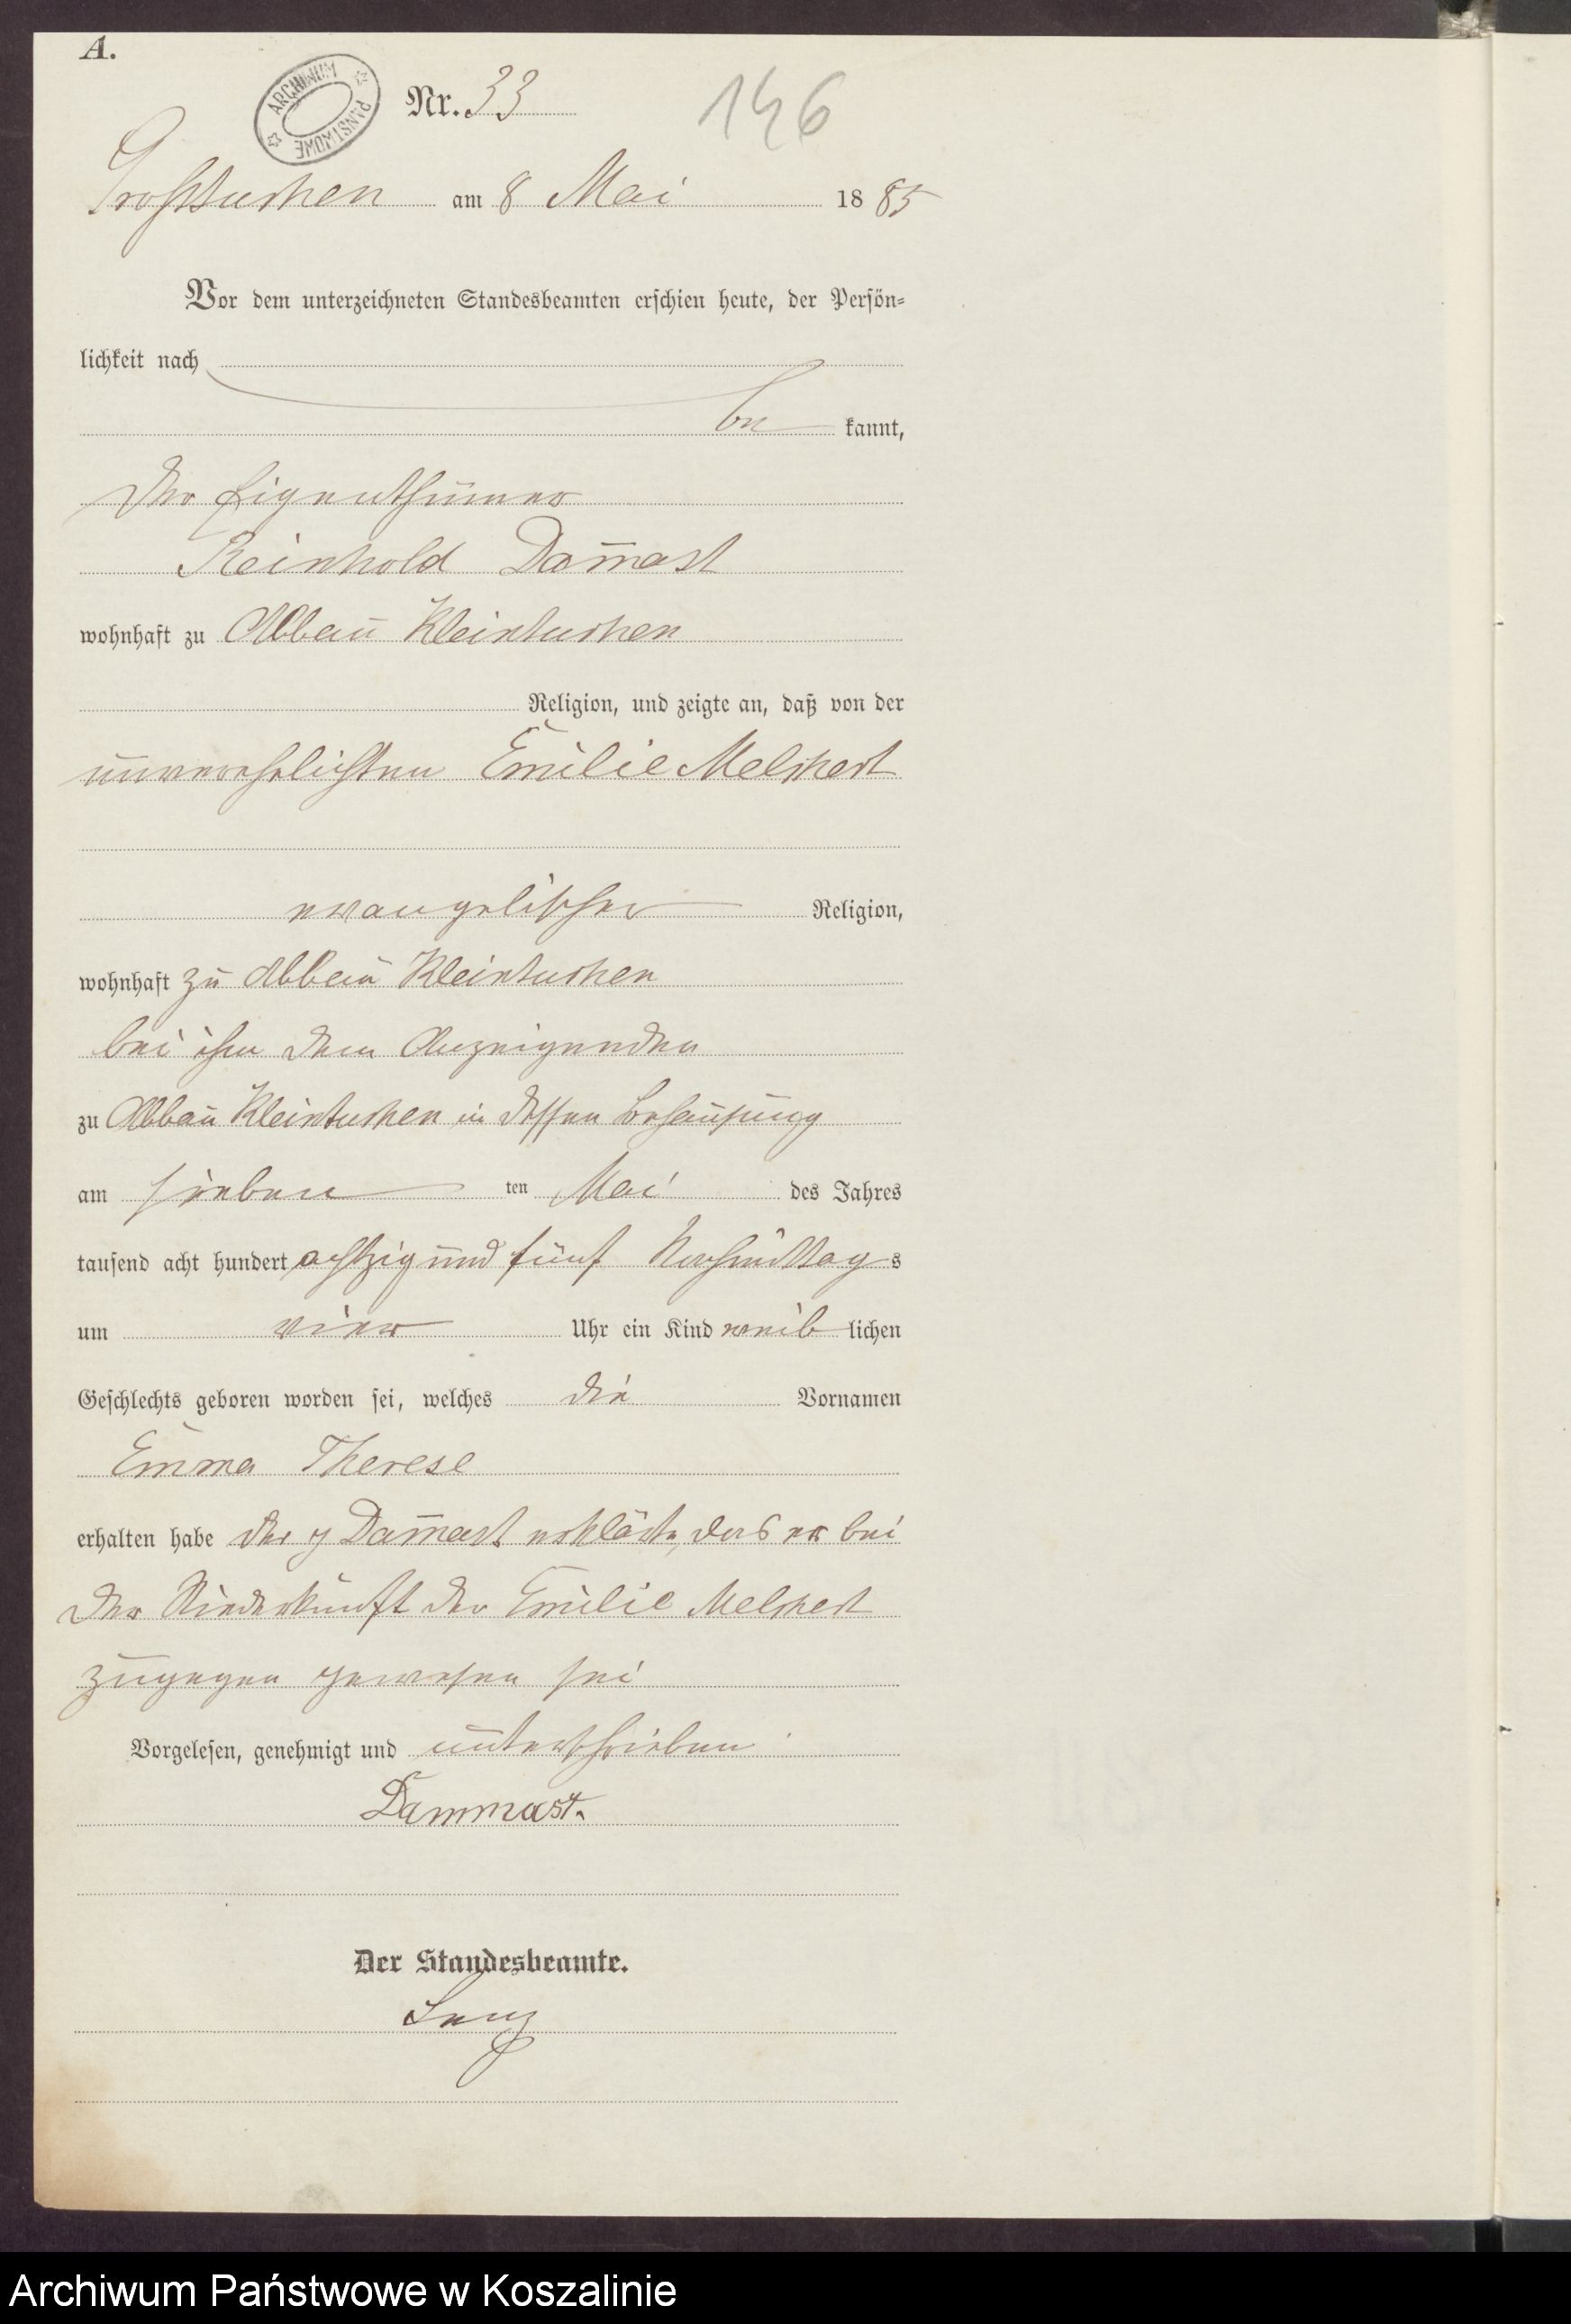 A.
ARCHIWUM PAŃSTWOWE
Nr. 33
146
Großtuchen am 8 Mai 1885
Vor dem unterzeichneten Standesbeamten erschien heute, der Persön-
lichkeit nach
be kannt,
der Eigenthümer
Reinhold Dam̄ast
wohnhaft zu Abbau Kleintuchen
Religion, und zeigte an, daß von der
unverehelichten Emilie Melchert
evangelischer Religion,
wohnhaft zu Abbau Kleintuchen
bei ihm dem Anzeigenden
zu Abbau Kleintuchen in dessen Behausung
am sieben ten Mai des Jahres
tausend acht hundert achtzig und fünf Nachmittag s
um vier Uhr ein Kind weib lichen
Geschlechts geboren worden sei, welches die Vornamen
Emma Therese
erhalten habe der Dam̄ast erklärte, das er bei
der Niederkunft der Emilie Melchert
zugegen gewesen sei
Vorgelesen, genehmigt und unterschrieben
Dammast.
Der Standesbeamte.
Lenz
Archiwum Państwowe w Koszalinie